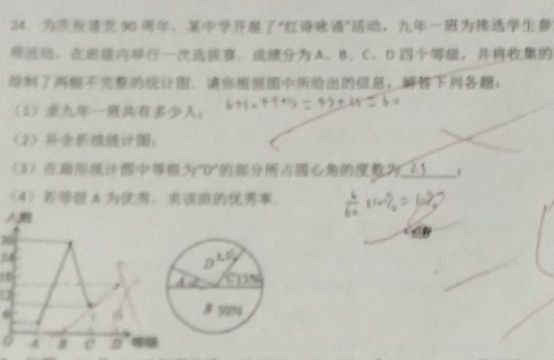 24. 为庆祝建党90周年，某中学开展了"红诗咏诵"活动，九年一班为推选学生参
赛活动，在班级内举行一次选拔赛，成绩分为A、B、C、D四个等级，并将收集的
绘制了两幅不完整的统计图，请你根据图中所给出的信息，解答下列各题：
（1）求九年一班共有多少人；
（2）补全折线统计图；
（3）在扇形统计图中等级为"D"的部分所占圆心角的度数为
（4）若等级A为优秀，求该班的优秀率.
×100% = 10%
人数
30
D
B 50%
A B C D 等级